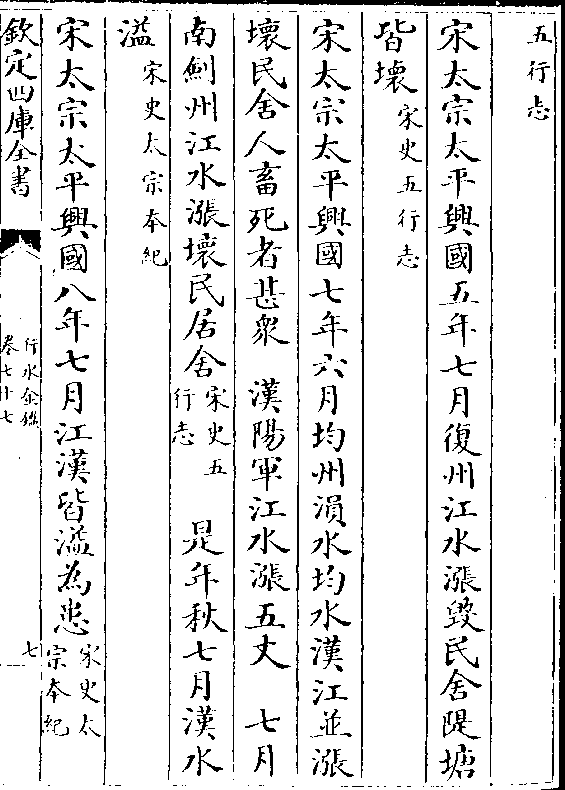 五行志
宋太宗太平興國五年七月復州江水漲毀民舍隄塘
皆壞宋史五行志
宋太宗太平興國七年六月均州涢水均水漢江並漲
壞民舍人畜死者甚衆　漢陽軍江水漲五丈　七月
南劍州江水漲壞民居舍宋史五行志　是年秋七月漢水
溢宋史太宗本紀
宋太宗太平興國八年七月江漢皆溢為患宋史太宗本紀
欽定四庫全書
行水金鑑
卷七十七
七